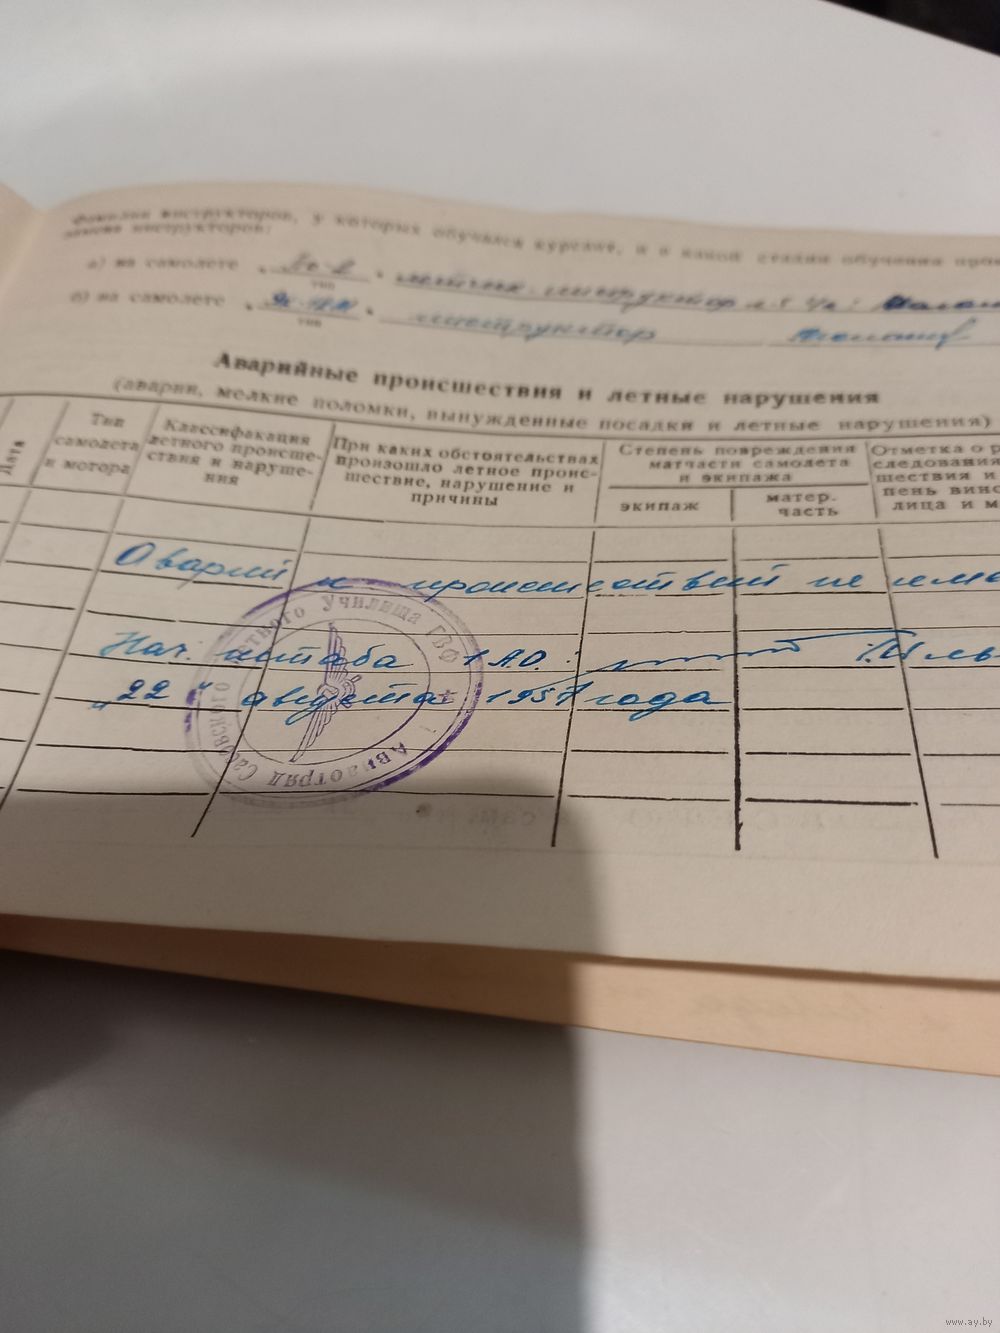 Фамилии инструкторов, у которых обучался курсант, и в какой стадии обучения
замена инструкторов:
а) на самолете
тип
б) на самолете
тип
инструктор
Аварийные происшествия и летные нарушения
(аварии, мелкие поломки, вынужденные посадки и летные нарушения)
Дата
Тип
самолета
и мотора
Классификация
летного происше-
ствия и наруше-
ния
При каких обстоятельствах
произошло летное проис-
шествие, нарушение и
причины
Степень повреждения
матчасти самолета
и экипажа
экипаж
матер.
часть
Отметка о р
следования
шествия и
пень вино
лица и м
Аварий и происшествий не име
Нач. штаба 1 АО:
"22" августа 1957 года
Авиаотряд Сасовского Летного Училища ГВФ
www.ay.by